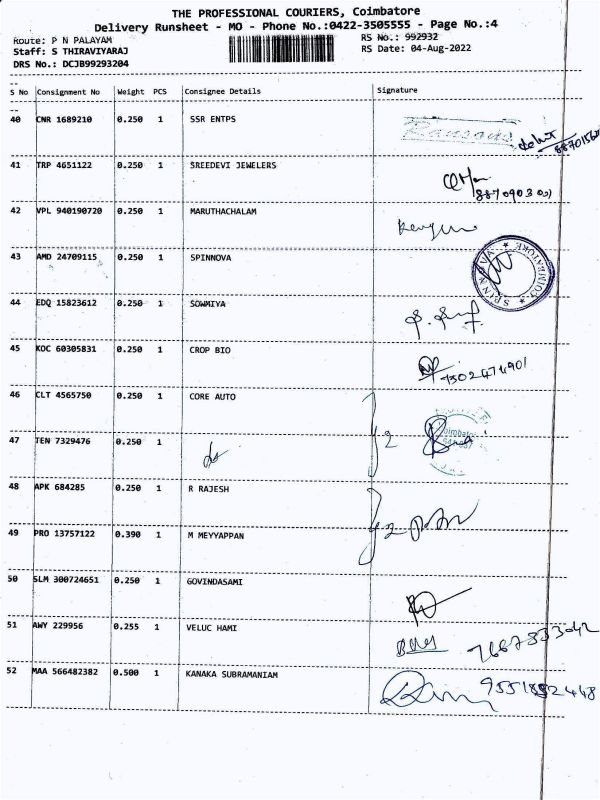 THE PROFESSIONAL COURIERS, Coimbatore
Delivery Runsheet - MO - Phone No.:0422-3505555 - Page No.:4
Route: P N PALAYAM RS No.: 992932
Staff: S THIRAVIYARAJ RS Date: 04-Aug-2022
DRS No.: DCJB99293204
S No Consignment No Weight PCS Consignee Details Signature
40 CNR 1689210 0.250 1 SSR ENTPS
41 TRP 4651122 0.250 1 SREEDEVI JEWELERS
42 VPL 940190720 0.250 1 MARUTHACHALAM
43 AMD 24709115 0.250 1 SPINNOVA
SPINNOVA ★ COIMBATORE ★
44 EDQ 15823612 0.250 1 SOWMIYA
45 KOC 60305831 0.250 1 CROP BIO
46 CLT 4565750 0.250 1 CORE AUTO
47 TEN 7329476 0.250 1
48 APK 684285 0.250 1 R RAJESH
49 PRO 13757122 0.390 1 M MEYYAPPAN
50 SLM 300724651 0.250 1 GOVINDASAMI
51 AWY 229956 0.255 1 VELUC HAMI
52 MAA 566482382 0.500 1 KANAKA SUBRAMANIAM